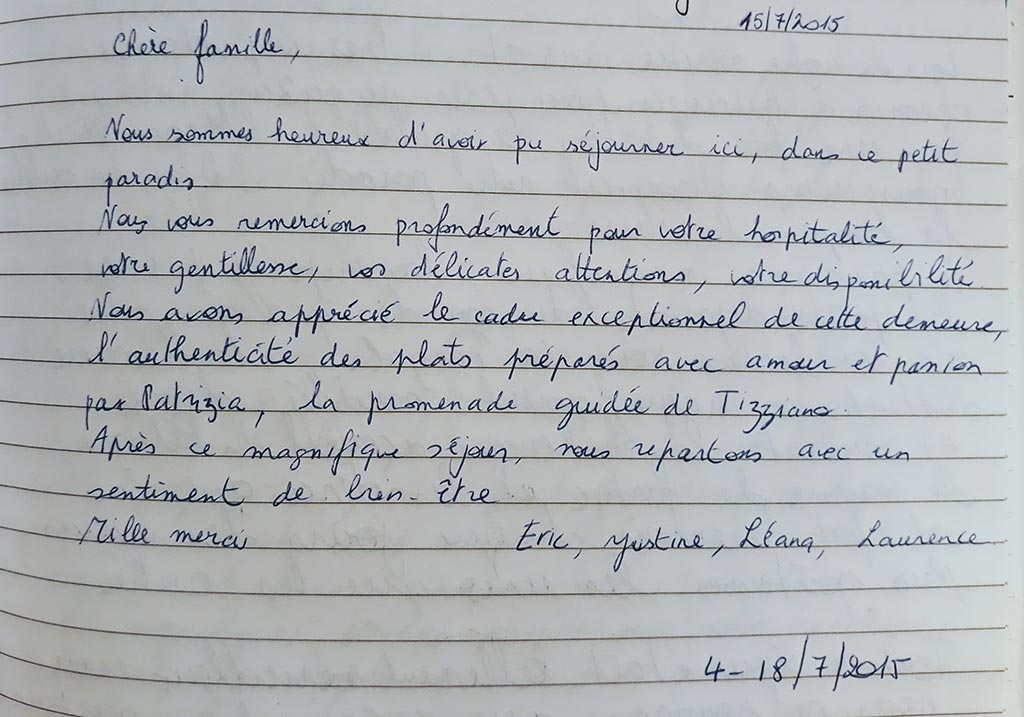 15/7/2015
Chère famille,
Nous sommes heureux d'avoir pu séjourner ici, dans ce petit
paradis.
Nous vous remercions profondément pour votre hospitalité,
votre gentillesse, vos délicates attentions, votre disponibilité.
Nous avons apprécié le cadre exceptionnel de cette demeure,
l'authenticité des plats préparés avec amour et passion
par Patrizia, la promenade guidée de Tizziano.
Après ce magnifique séjour, nous repartons avec un
sentiment de bien-être.
Mille mercis Eric, Justine, Léana, Laurence
4-18/7/2015